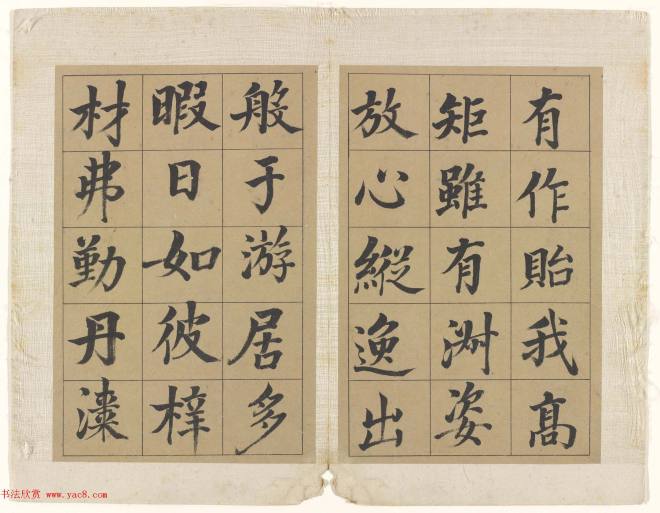 有作貽我高
矩雖有淑姿
放心縱逸出
般于游居多
暇日如彼梓
材弗勤丹漆
书法欣赏 www.yac8.com